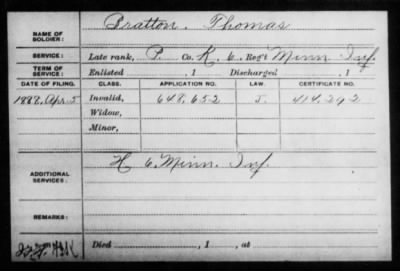 NAME OF SOLDIER: Bratton, Thomas
SERVICE: Late rank, P. Co. K, 6 Reg't Minn Inf.
TERM OF SERVICE: Enlisted , 1 Discharged , 1
DATE OF FILING. CLASS. APPLICATION NO. LAW. CERTIFICATE NO.
1888, Apr. 5 Invalid, 648,652 J. 414,292
Widow,
Minor,
ADDITIONAL SERVICES: H 6 Minn. Inf.
REMARKS:
Died , 1 , at